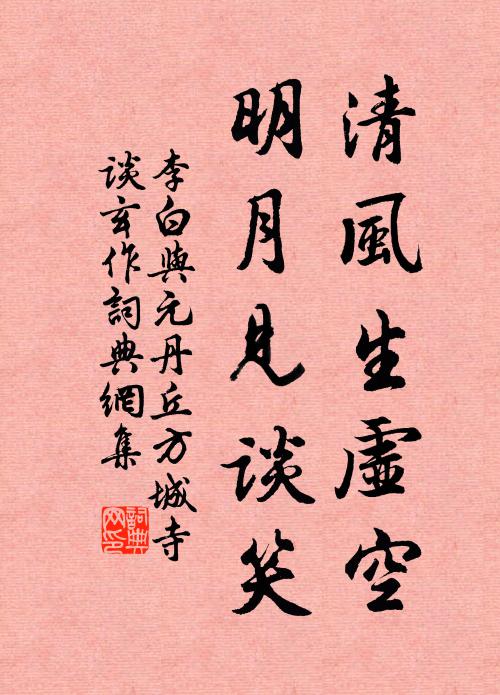 清風生虛空
明月見談笑
李白與元丹丘方城寺
談玄作詞典網集
詞典
网印